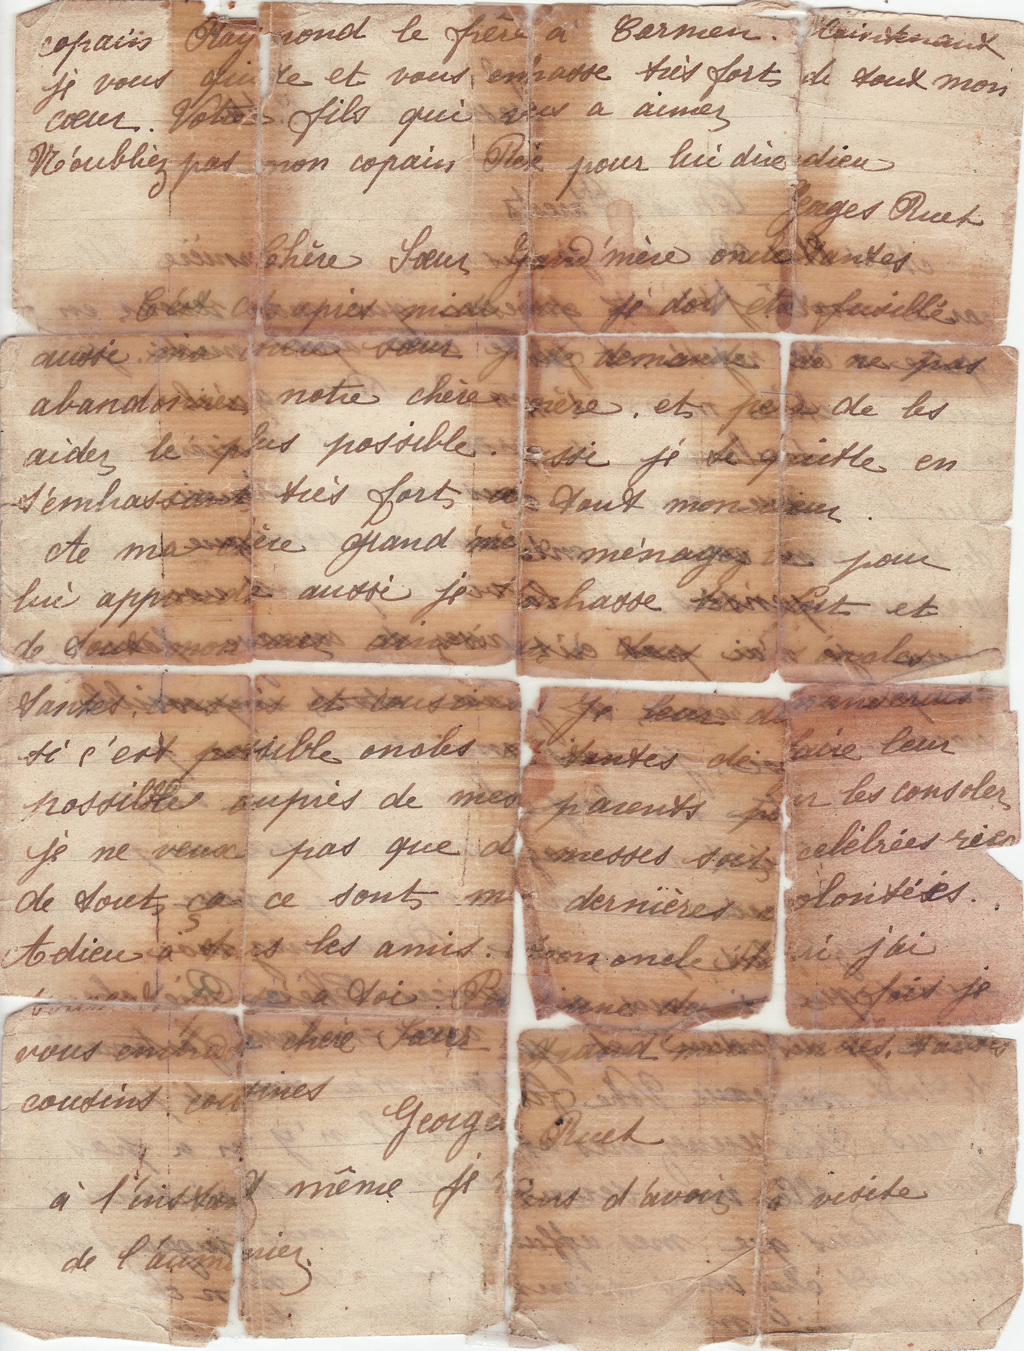 copain Raymond le frère à Carmen. Maintenant
je vous quitte et vous embrasse très fort de tout mon
cœur. Votre fils qui vous a aimez
N'oubliez pas mon copain René pour lui dire adieu
Georges Ruet
Chère Sœur Grand'mère oncle tantes
C'est cet après midi je dois être fusillé
aussi ma chère sœur je te demande de ne pas
abandonner notre chère mère. et père de les
aidez le plus possible. aussi je te quitte en
t'embrassant très fort de tout mon cœur.
A ma chère Grand'mère ménagez pour
lui apprendre aussi je embrasse très fort et
de tout mon oncles
tantes, cousins et cousines Je leur demanderais
si c'est possible oncles tantes de faire leur
possible auprès de mes parents pour les consolez
je ne veux pas que des messes soit célébrées rien
de tout ça ce sont mes dernières volontées.
Adieu à tous les amis. mon oncle j'ai
à toi fois je
vous embrasse chère Sœur grand mère oncles. tantes
cousins cousines
Georges Ruet
à l'instant même je viens d'avoir la visite
de l'aumonier.